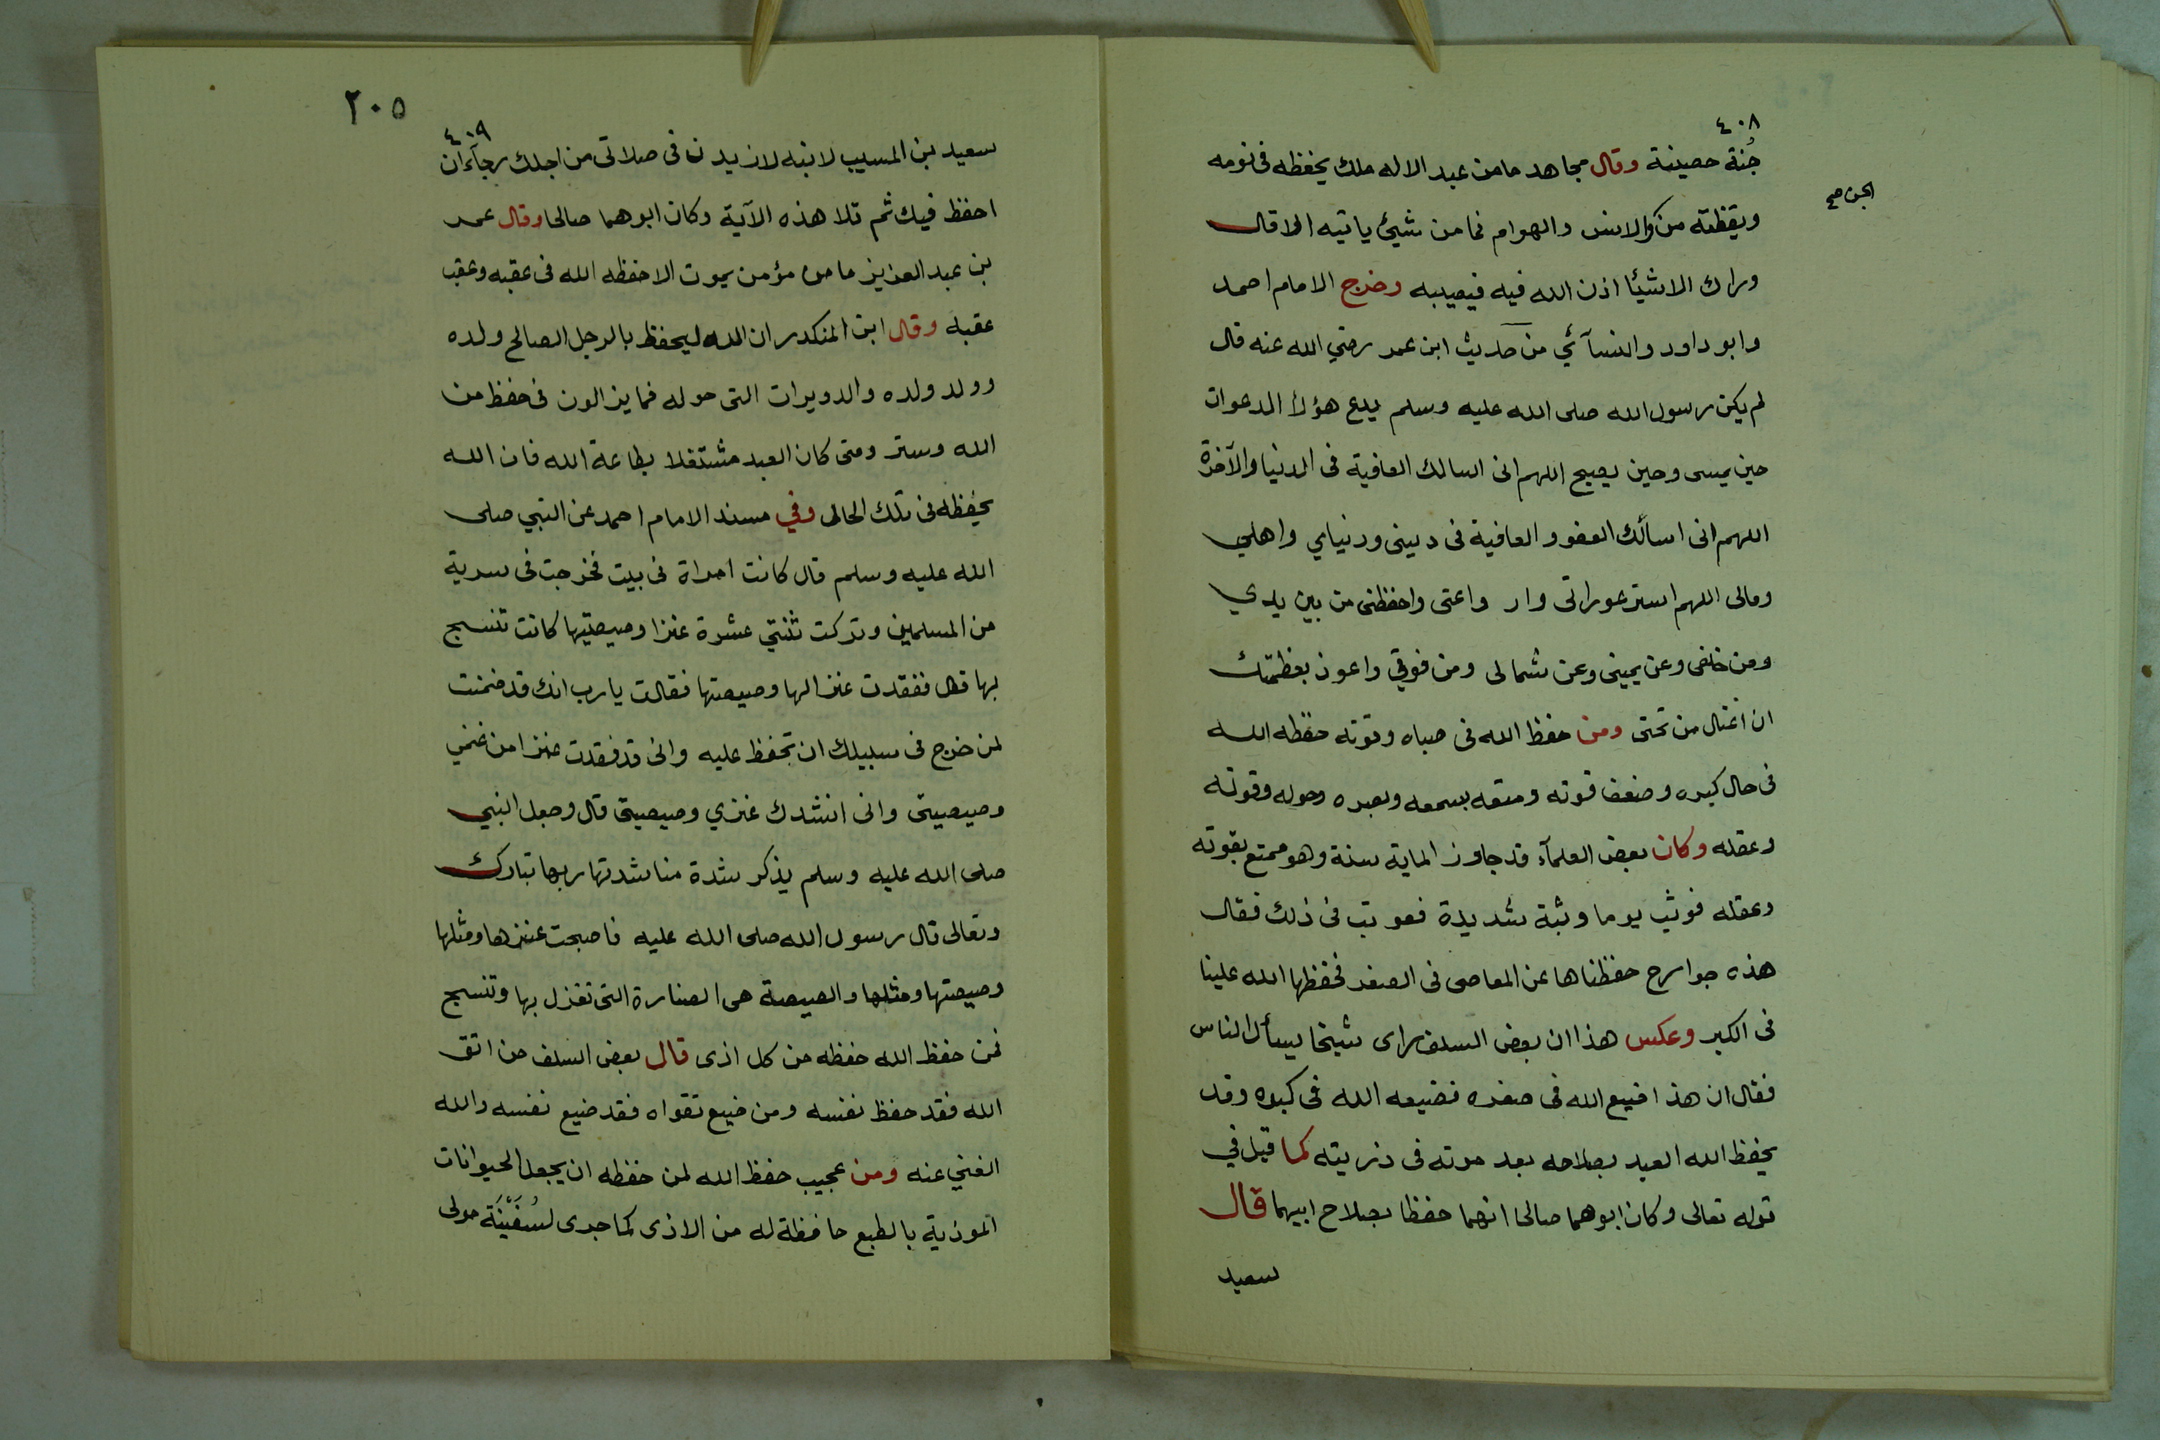 ٤٠٨
جُنة حصينة وقال مجاهد ما من عبد الا له ملك يحفظه فى نومه
ويقظته من والانس والهوام فما من شيئ ياتيه الا قال
الجن صح
وراك الا شيئا اذن الله فيه فيصيبه وخرج الامام احمد
وابو داود والنسآئي من حديث ابن عمر رضي الله عنه قال
لم يكن رسول الله صلى الله عليه وسلم يدع هؤلا الدعوات
حين يمسى وحين يصبح اللهم انى اسالك العافية فى الدنيا والآخرة
اللهم انى اسألك العفو والعافية فى دينى ودنياي واهلي
ومالى اللهم استر عوراتى وار واعتى واحفظنى من بين يدي
ومن خلفى وعن يمينى وعن شمالى ومن فوقي واعوذ بعظمتك
ان اغتال من تحتى ومن حفظ الله فى صباه وقوته حفظه الله
فى حال كبره وضعف قوته ومتعه بسمعه وبصره وحوله وقوته
وعقله وكان بعض العلمآء قد جاوز الماية سنة وهو ممتع بقوته
وعقله فوثب يوما وثبة شديدة فعوتب فى ذلك فقال
هذه جوارح حفظناها عن المعاصى فى الصغر فحفظها الله علينا
فى الكبر وعكس هذا ان بعض السلف راى شيخا يسأل الناس
فقال ان هذا اضيع الله فى صغره فضيعه الله فى كبره وقد
يحفظ الله العبد بصلاحه بعد موته فى ذريته كما قيل في
قوله تعالى وكان ابوهما صالحا انهما حفظا بصلاح ابيهما قال
سعيد
٢٠٥
٤٠٩
سعيد بن المسيب لابنه لازيدن فى صلاتى من اجلك رجآء ان
احفظ فيك ثم تلا هذه الآية وكان ابوهما صالحا وقال عمر
بن عبد العزيز ما من مؤمن يموت الا حفظه الله فى عقبه وعقب
عقبه وقال ابن المنكدر ان الله ليحفظ بالرجل الصالح ولده
وولد ولده والدويرات التى حوله فما يزالون فى حفظ من
الله وستر ومتى كان العبد مشتغلا بطاعة الله فان الله
يحفظه فى تلك الحال وفي مسند الامام احمد عن النبي صلى
الله عليه وسلم قال كانت امراة فى بيت فخرجت فى سرية
من المسلمين وتركت ثنتي عشرة عنزا وصيصتيها كانت تنسج
بها قال ففقدت عنزا لها وصيصتها فقالت يارب انك قد ضمنت
لمن خرج فى سبيلك ان تحفظ عليه وانى قد فقدت عنزا من غنمي
وصيصيتى وانى انشدك عنزي وصيصيتى قال وجعل النبي
صلى الله عليه وسلم يذكر شدة مناشدتها ربها تبارك
وتعالى قال رسول الله صلى الله عليه فاصبحت عنزها ومثلها
وصيصتها ومثلها والصيصة هى الصنارة التى تغزل بها وتنسج
فمن حفظ الله حفظه من كل اذى قال بعض السلف من اتق
الله فقد حفظ نفسه ومن ضيع تقواه فقد ضيع نفسه والله
الغني عنه ومن عجيب حفظ الله لمن حفظه ان يجعل الحيوانات
الموذية بالطبع حافظة له من الاذى كما جرى لسفينة مولى